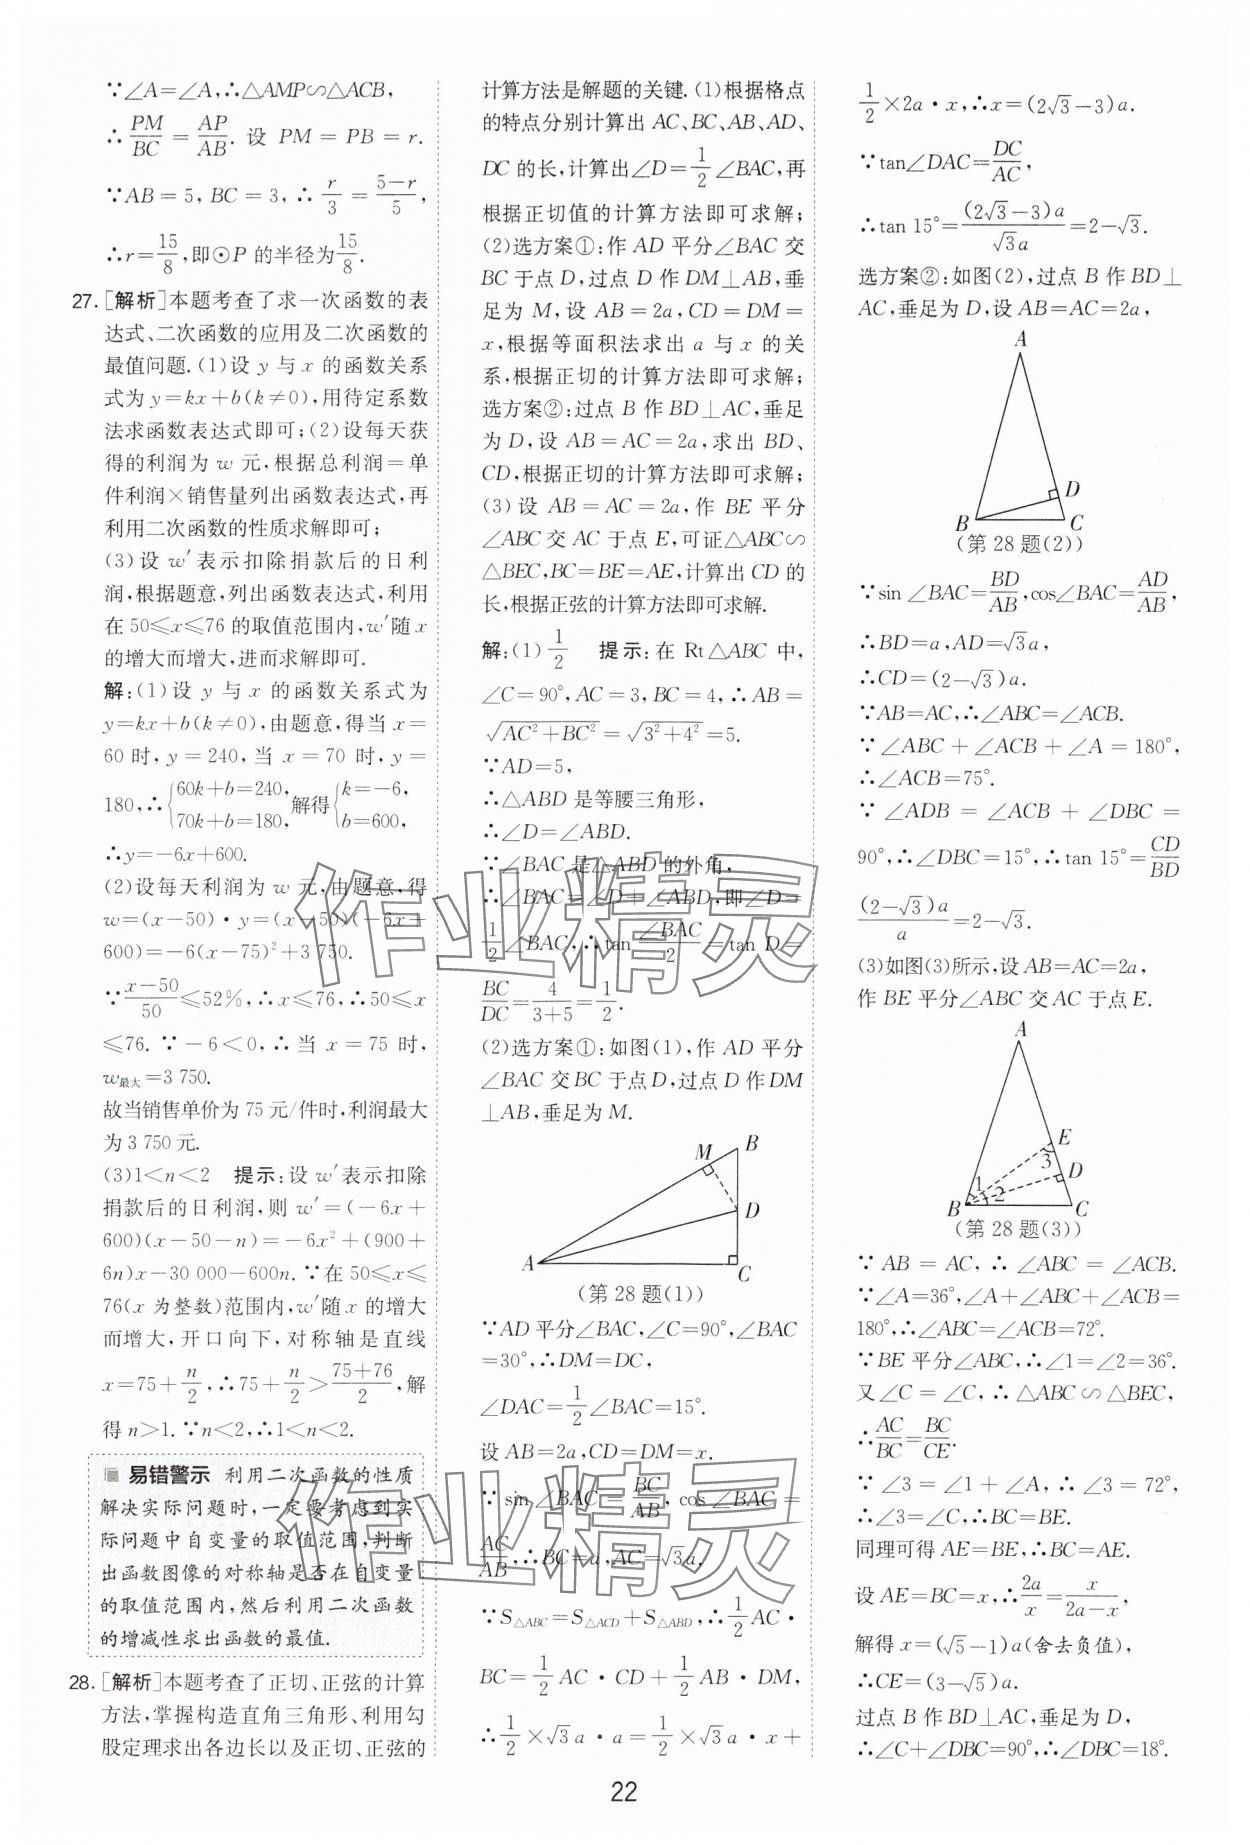 ∵∠A=∠A,∴△AMP∽△ACB,
∴PM/BC=AP/AB. 设 PM=PB=r.
∵AB=5,BC=3,∴r/3=(5-r)/5,
∴r=15/8,即⊙P的半径为15/8.
27.[解析]本题考查了求一次函数的表
达式、二次函数的应用及二次函数的
最值问题.(1)设 y 与 x 的函数关系
式为 y=kx+b(k≠0),用待定系数
法求函数表达式即可;(2)设每天获
得的利润为 w 元,根据总利润=单
件利润×销售量列出函数表达式,再
利用二次函数的性质求解即可;
(3)设 w′表示扣除捐款后的日利
润,根据题意,列出函数表达式,利用
在 50≤x≤76 的取值范围内,w′随 x
的增大而增大,进而求解即可.
解:(1)设 y 与 x 的函数关系式为
y=kx+b(k≠0),由题意,得当 x=
60 时,y=240,当 x=70 时,y=
180,∴{60k+b=240, 70k+b=180,解得{k=-6, b=600,
∴y=-6x+600.
(2)设每天利润为 w 元,由题意,得
w=(x-50)·y=(x-50)(-6x+
600)=-6(x-75)²+3 750.
∵(x-50)/50≤52%,∴x≤76,∴50≤x
≤76.∵-6<0,∴当 x=75 时,
w最大=3 750.
故当销售单价为 75 元/件时,利润最大
为 3 750 元.
(3)1<n<2 提示:设 w′表示扣除
捐款后的日利润,则 w′=(-6x+
600)(x-50-n)=-6x²+(900+
6n)x-30 000-600n.∵在 50≤x≤
76(x 为整数)范围内,w′随 x 的增大
而增大,开口向下,对称轴是直线
x=75+n/2,∴75+n/2>(75+76)/2,解
得 n>1.∵n<2,∴1<n<2.
易错警示 利用二次函数的性质
解决实际问题时,一定要考虑到实
际问题中自变量的取值范围,判断
出函数图像的对称轴是否在自变量
的取值范围内,然后利用二次函数
的增减性求出函数的最值.
28.[解析]本题考查了正切、正弦的计算
方法,掌握构造直角三角形、利用勾
股定理求出各边长以及正切、正弦的
计算方法是解题的关键.(1)根据格点
的特点分别计算出 AC、BC、AB、AD、
DC 的长,计算出∠D=1/2∠BAC,再
根据正切值的计算方法即可求解;
(2)选方案①:作 AD 平分∠BAC 交
BC 于点 D,过点 D 作 DM⊥AB,垂
足为 M,设 AB=2a,CD=DM=
x,根据等面积法求出 a 与 x 的关
系,根据正切的计算方法即可求解;
选方案②:过点 B 作 BD⊥AC,垂足
为 D,设 AB=AC=2a,求出 BD、
CD,根据正切的计算方法即可求解;
(3)设 AB=AC=2a,作 BE 平分
∠ABC 交 AC 于点 E,可证△ABC∽
△BEC,BC=BE=AE,计算出 CD 的
长,根据正弦的计算方法即可求解.
解:(1)1/2 提示:在 Rt△ABC 中,
∠C=90°,AC=3,BC=4,∴AB=
√(AC²+BC²)=√(3²+4²)=5.
∵AD=5,
∴△ABD 是等腰三角形,
∴∠D=∠ABD.
∵∠BAC 是△ABD 的外角,
∴∠BAC=∠D+∠ABD,即∠D=
1/2∠BAC,∴tan ∠BAC/2=tan D=
BC/DC=4/(3+5)=1/2.
(2)选方案①:如图(1),作 AD 平分
∠BAC 交 BC 于点 D,过点 D 作 DM
⊥AB,垂足为 M.
B
M
D
A
C
(第 28 题(1))
∵AD 平分∠BAC,∠C=90°,∠BAC
=30°,∴DM=DC,
∠DAC=1/2∠BAC=15°.
设 AB=2a,CD=DM=x.
∵sin ∠BAC=BC/AB,cos∠BAC=
AC/AB,∴BC=a,AC=√3a.
∵S△ABC=S△ACD+S△ABD,∴1/2AC·
BC=1/2AC·CD+1/2AB·DM,
∴1/2×√3a·a=1/2×√3a·x+
1/2×2a·x,∴x=(2√3-3)a.
∵tan∠DAC=DC/AC,
∴tan 15°=(2√3-3)a/√3a=2-√3.
选方案②:如图(2),过点 B 作 BD⊥
AC,垂足为 D,设 AB=AC=2a,
A
D
B
C
(第 28 题(2))
∵sin ∠BAC=BD/AB,cos∠BAC=AD/AB,
∴BD=a,AD=√3a,
∴CD=(2-√3)a.
∵AB=AC,∴∠ABC=∠ACB.
∵∠ABC+∠ACB+∠A=180°,
∴∠ACB=75°.
∵∠ADB=∠ACB+∠DBC=
90°,∴∠DBC=15°,∴tan 15°=CD/BD
(2-√3)a/a=2-√3.
(3)如图(3)所示,设 AB=AC=2a,
作 BE 平分∠ABC 交 AC 于点 E.
A
E
3
D
1
2
B
C
(第 28 题(3))
∵AB=AC,∴∠ABC=∠ACB.
∵∠A=36°,∠A+∠ABC+∠ACB=
180°,∴∠ABC=∠ACB=72°.
∵BE 平分∠ABC,∴∠1=∠2=36°.
又∠C=∠C,∴△ABC∽△BEC,
∴AC/BC=BC/CE.
∵∠3=∠1+∠A,∴∠3=72°,
∴∠3=∠C,∴BC=BE.
同理可得 AE=BE,∴BC=AE.
设 AE=BC=x,∴2a/x=x/(2a-x),
解得 x=(√5-1)a(舍去负值),
∴CE=(3-√5)a.
过点 B 作 BD⊥AC,垂足为 D,
∴∠C+∠DBC=90°,∴∠DBC=18°.
22
作业精灵
作业精灵